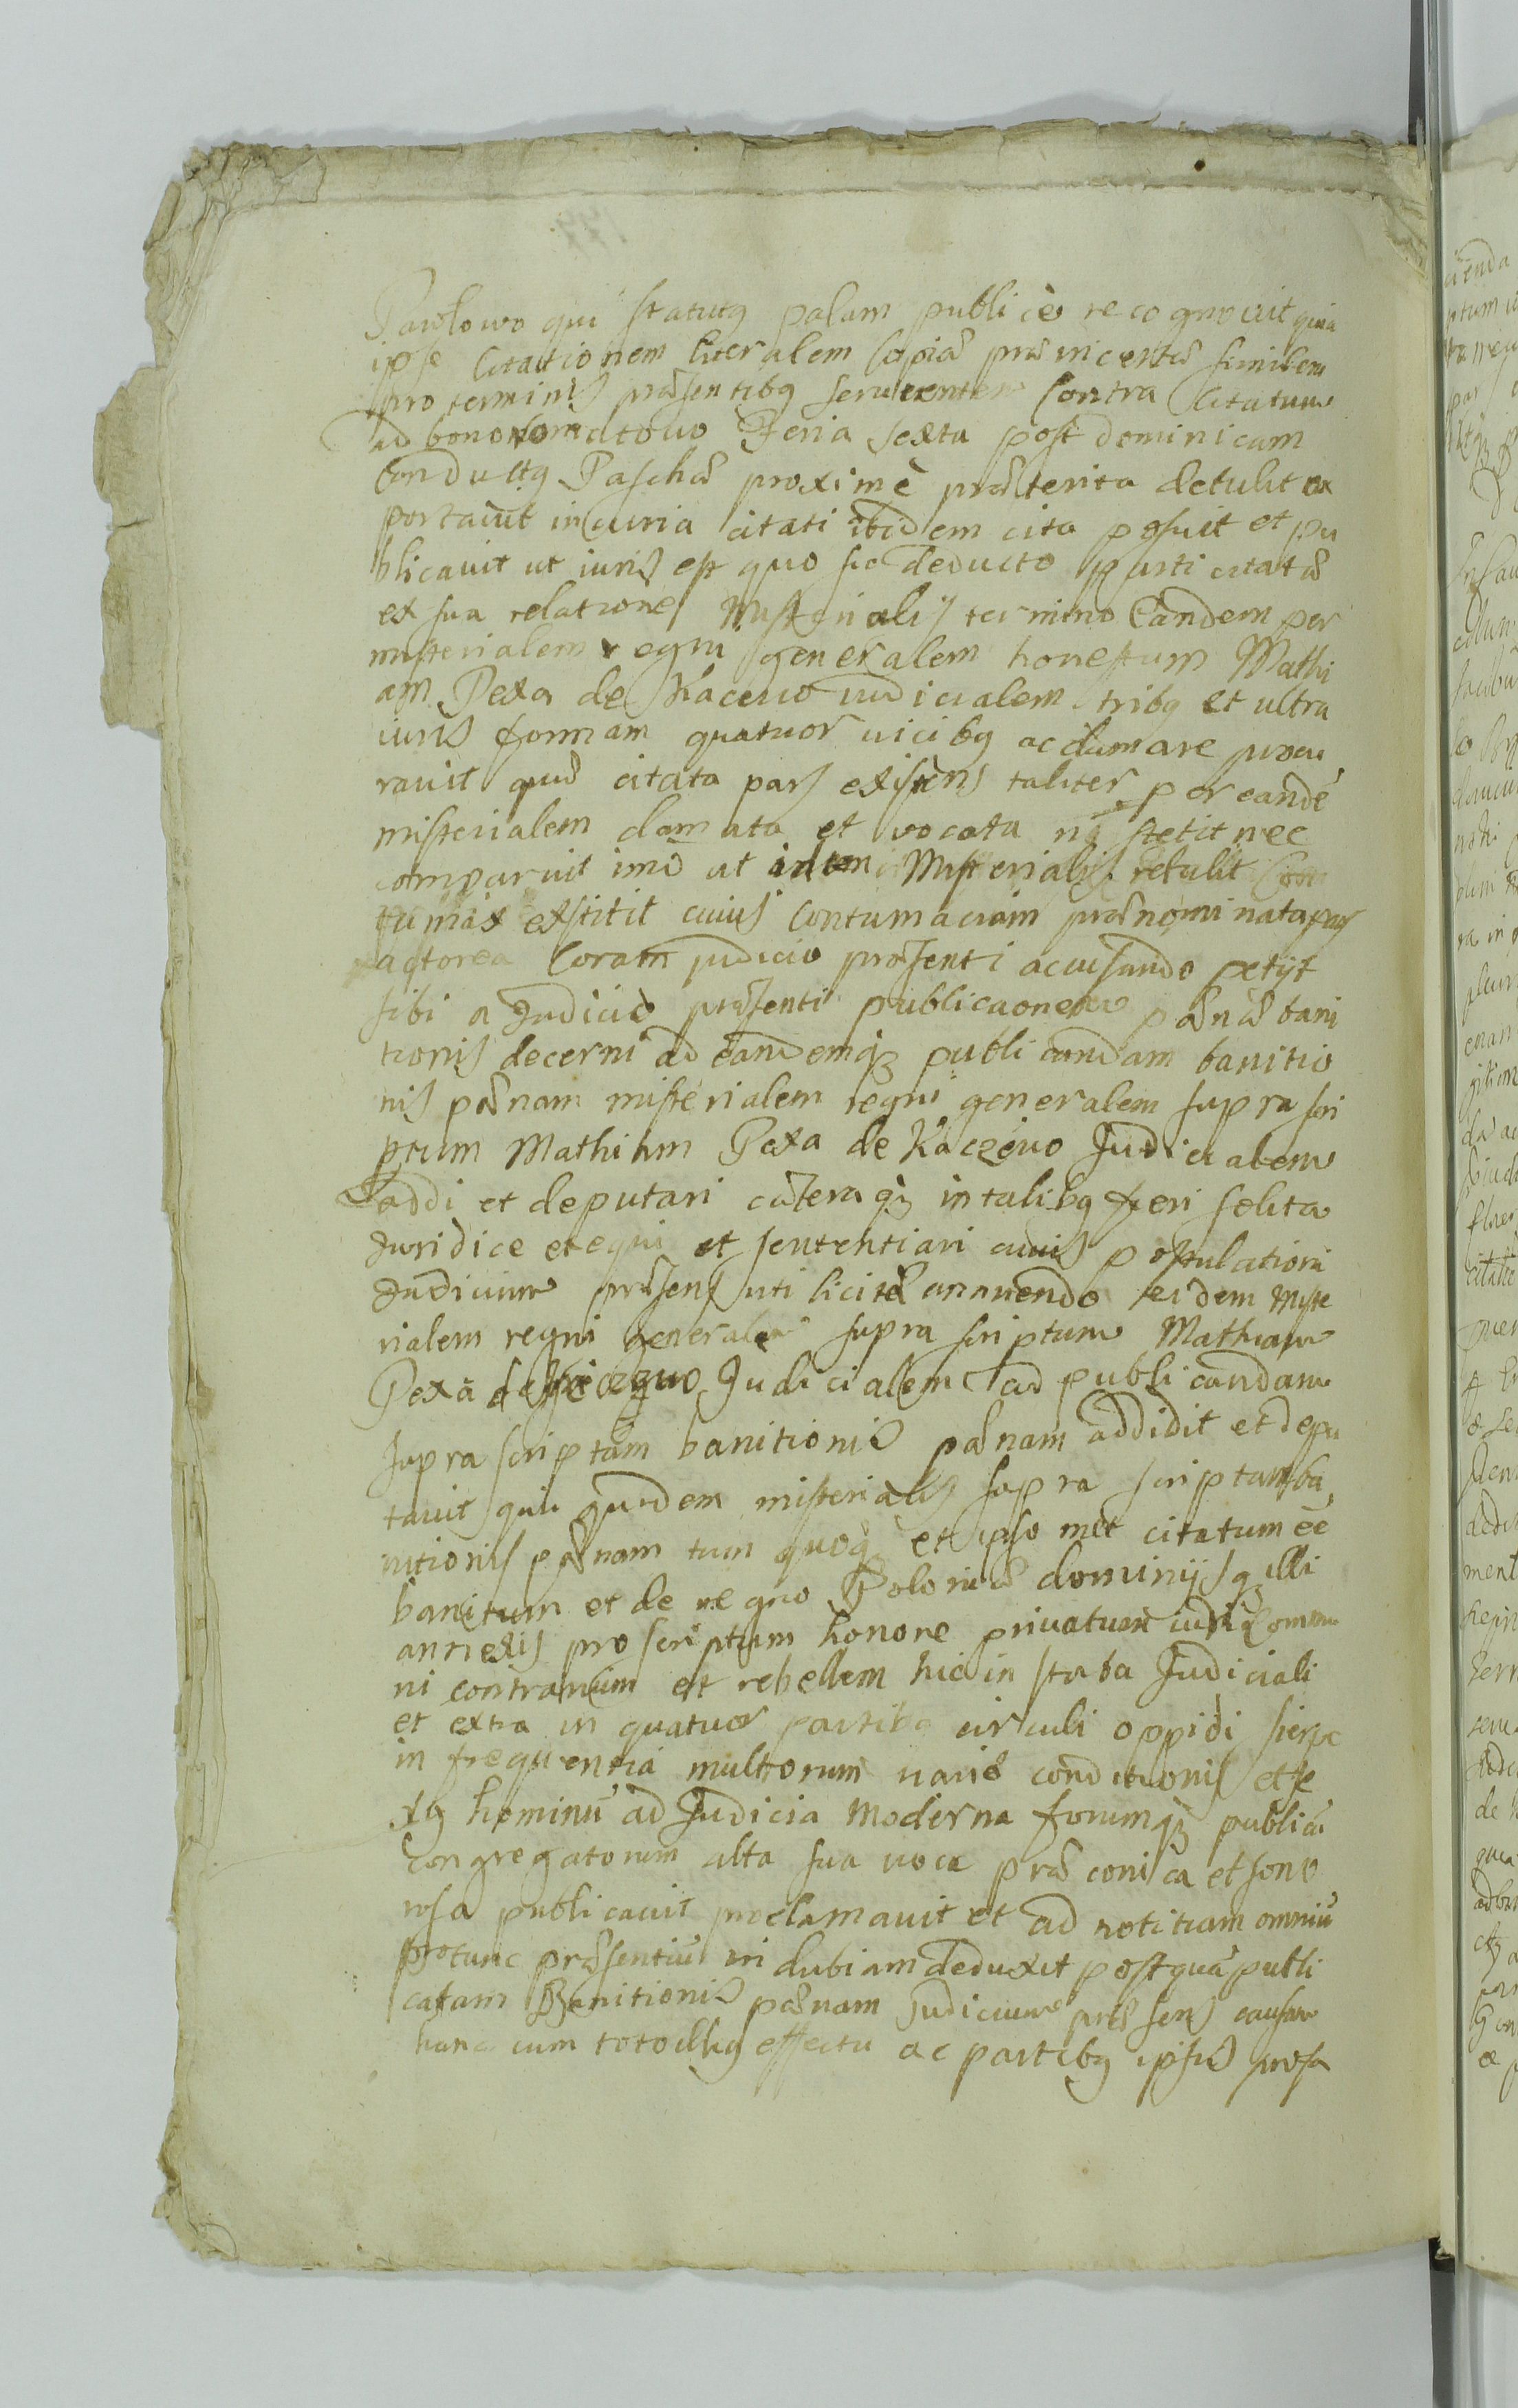 Pawlowo qui statutq palam publicè recognovit quia
ipse Citationem literalem Copiæ præinsertæ similem
pro terminis præsentibq seruientem Contra Citatum
ad bona Feria sexta post dominicam
Conductq Paschæ proximè præterita detulit ex
portavit in curia citati ibidem cita posuit et pu
blicavit ut iuris est quo sic deducto parti citatæ
ex sua relatione Misterialis termino Eandem per
misterialem regni generalem honestum Mathi
am Pexa de Kacewo iudicialem tribq et ultra
iuris formam quatuor vicibq acclamare procu
ravit quæ citata pars existens taliter per eandé
misterialem clamata et vocata nō stetit nec
comparuit imō ut Misterialis retulit Con
tumax exstitit cuius Contumaciam prænominata pars
actorea Coram judicio præsenti accusando petijt
sibi a Judicio præsenti publicaonem pænæ bani
tionis decerni ad eandemq publicandam banitio
nis pænam misterialem regni generalem supra scri
ptum Mathiam Pexa de Kaczewo Judicialem
addi et deputari cæteraq in talibq fieri solita
Juridice exequi et sententiari cuius postulationi
Judicium præsens uti licitæ annuendo eidem Miste
rialem regni generalem supra scriptum Mathiam
Pexa de Judicialem ad publicandam
supra scriptam banitionis pænam addidit et depu
tavit qui quidem misterialis supra scriptam ba
nitionis pænam tum quoq et ipso met citatum eē
banitum et de regno Poloniæ dominijsq illi
annexis proscriptum honore privatum iuriq commu
ni contrarium et rebellem hic in stuba Judiciali
et extra in quatuor partibq circuli oppidi Sierpc
in frequentia multorum variæ conditionis et se
xq hominū ad Judicia Moderna forumq publicū
congregatorum alta sua voce præconica et sono
rosa publicavit proclamavit et ad notitiam omniū
protunc præsentiū in dubiam deduxit post quā publi
catam Banitionis pænam Judicium præsens causam
hanc cum toto illiq effectu ac partibq ipsius